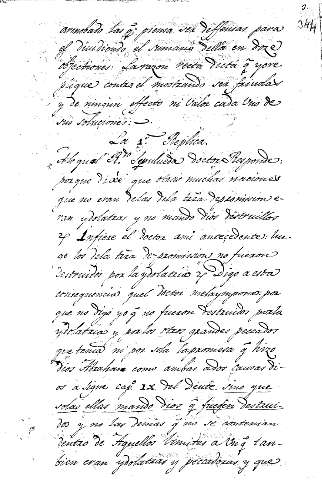 2.
344
las q̃ piensa ser diffusas para
el diuidiendo el sumario della en doze
objectiones. La razon recta dicta q̃ yo re
plique contra el mostrando ser friuolas
y de ningun effecto ni valor cada vno de
sus soluciones:
La 1ª Replica.
Al qual Rdo. Sepulueda doctor Responde:
porque dixe que otras muchas naciones
que no eran de las de la trra de promission e-
ran ydolatras y no mando dios destruillos
Y Infiere el doctor ami antecedente: lue-
go los dela trra de promission no fueron
destruidos por la ydolatria. Y Digo a esta
consequencia quel doctor me la ympone por
que no digo yo q̃ no fueron destruidos por la
ydolatria y por los otros grandes peccados
q̃ tenian ni por sola la promesa q̃ hizo
dios Abraham como ambas a dos causas di-
os asigne capº. IX del Deute. sino que
solas ellas mando dios q̃ fuesen destrui-
dos y no las demas q̃ no se contenian
dentro de Aquellos limites a vn q̃ tam-
bien eran ydolatras y peccadoras y que